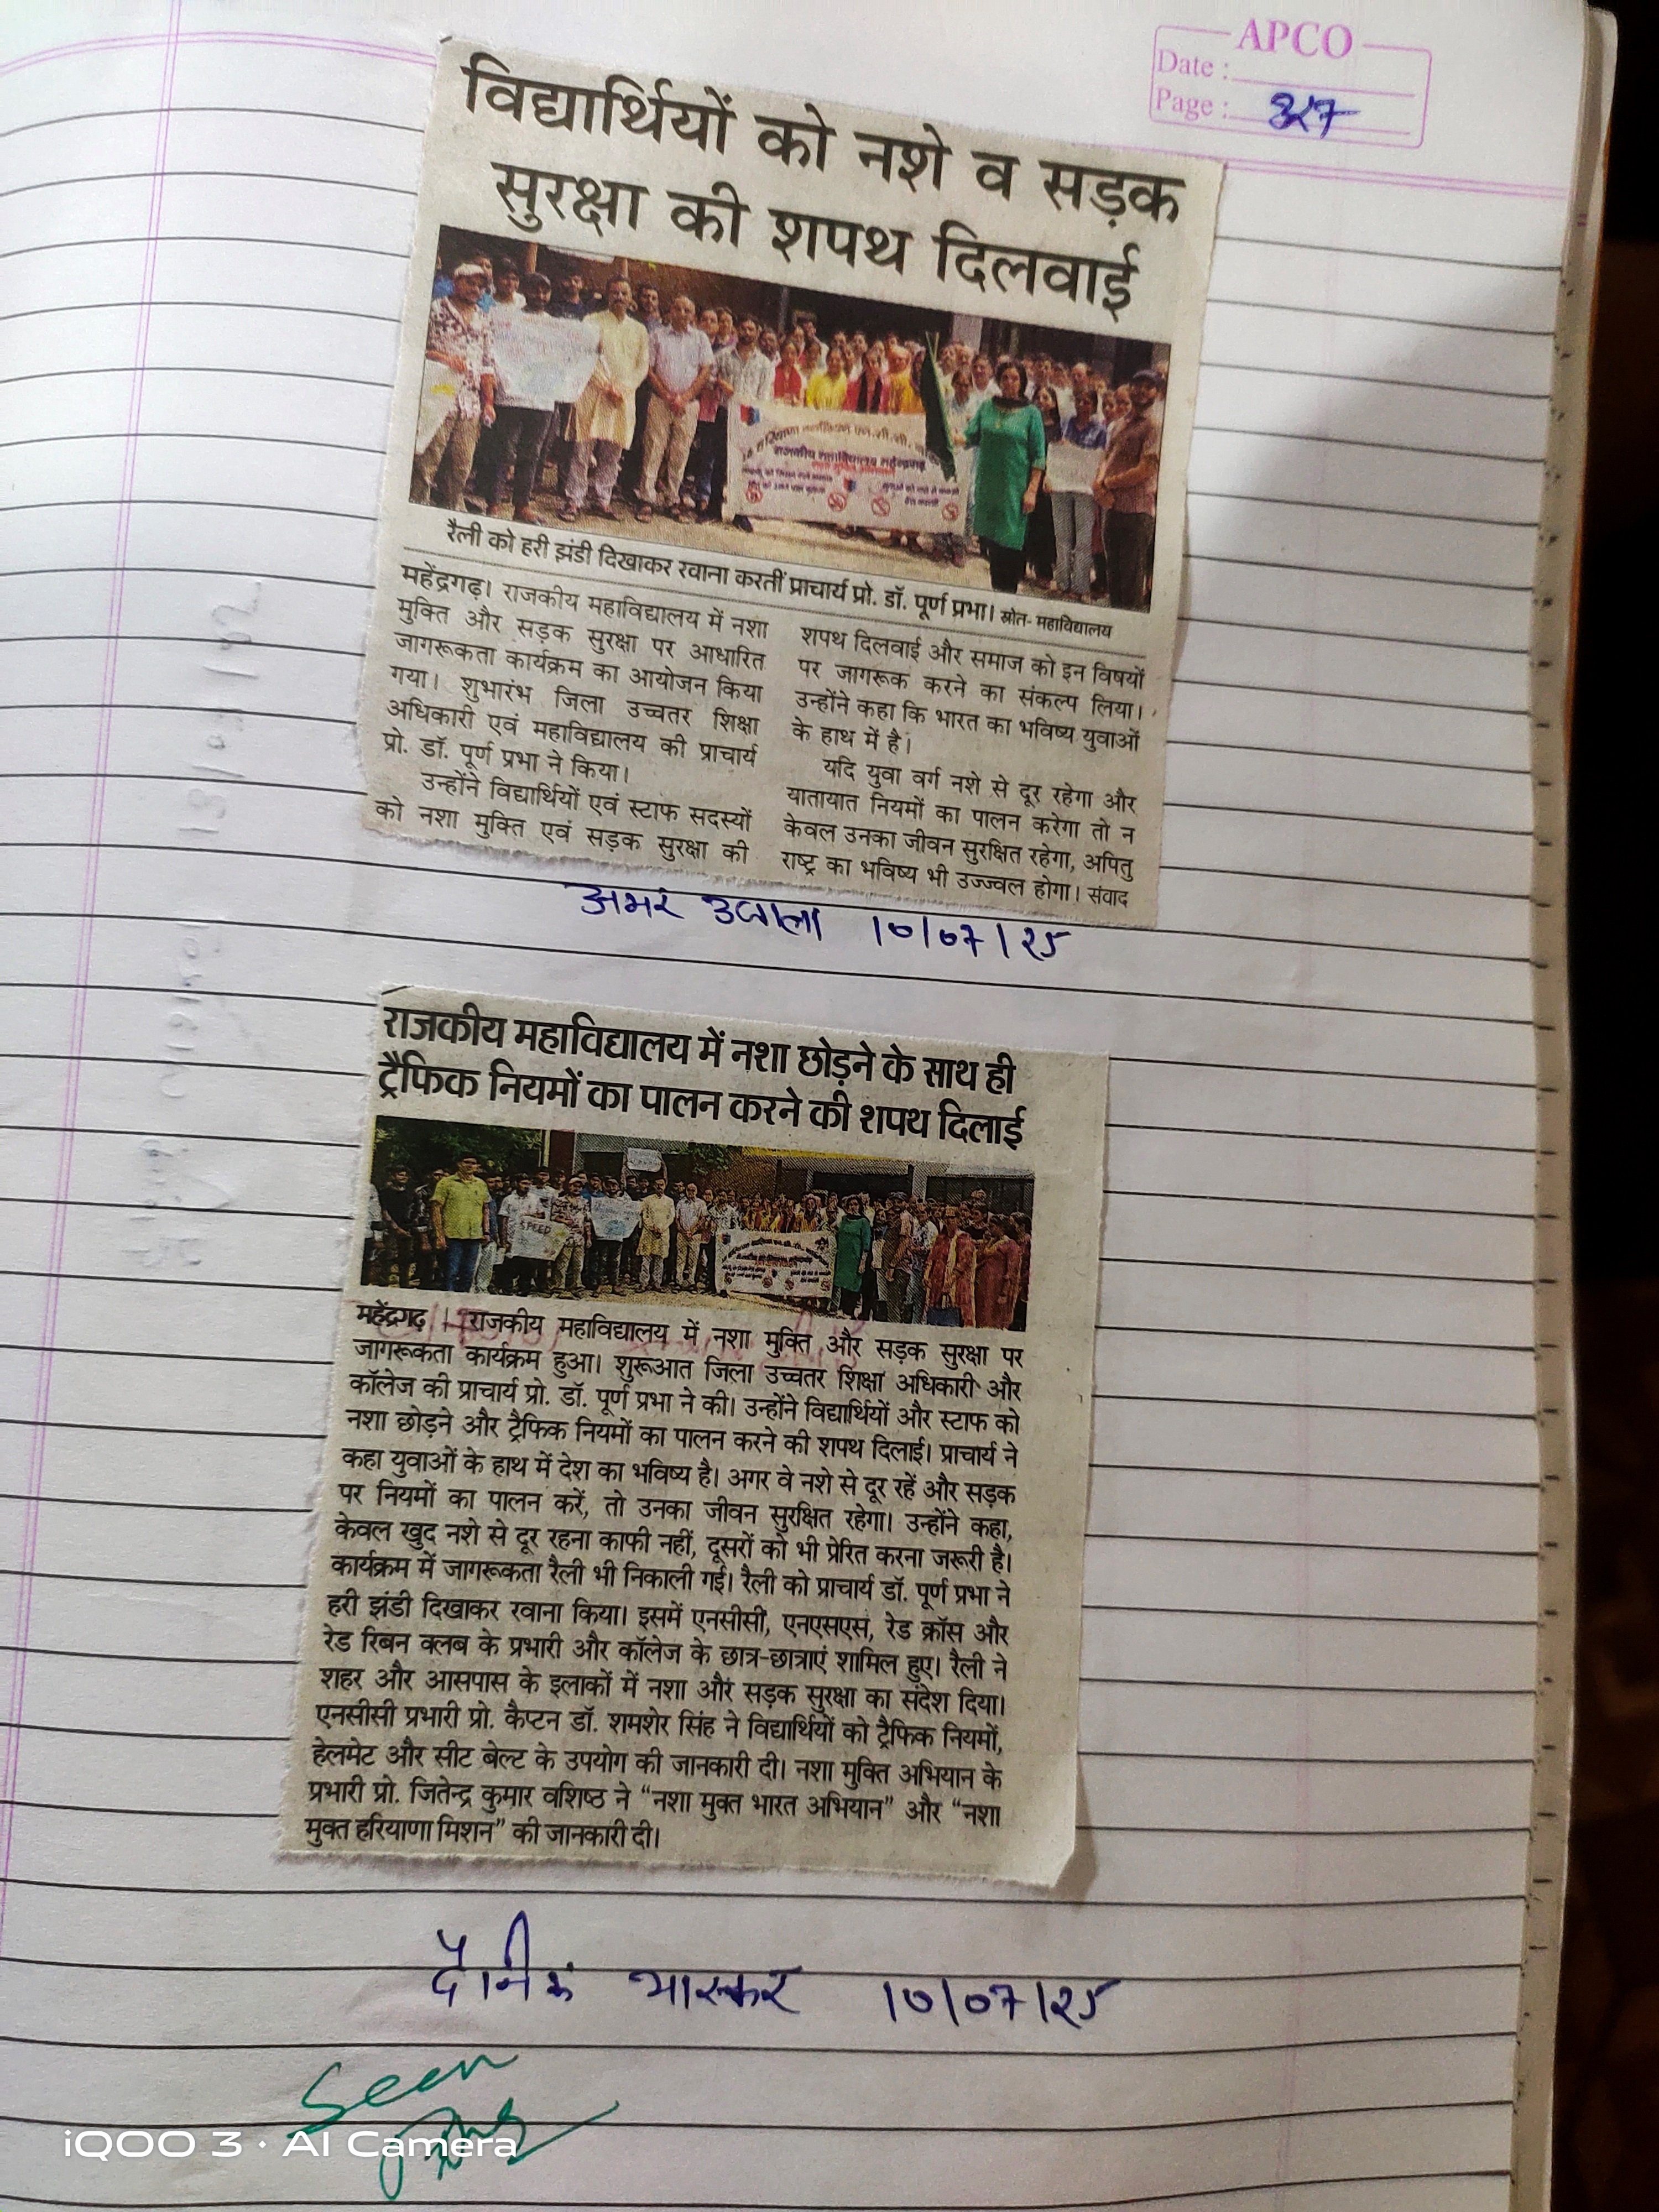 APCO
Date :
Page :
विद्यार्थियों को नशे व सड़क
सुरक्षा की शपथ दिलवाई
राजकीय महाविद्यालय महेन्द्रगढ़
रैली को हरी झंडी दिखाकर रवाना करतीं प्राचार्य प्रो. डॉ. पूर्ण प्रभा। स्रोत- महाविद्यालय
महेंद्रगढ़। राजकीय महाविद्यालय में नशा
मुक्ति और सड़क सुरक्षा पर आधारित
जागरूकता कार्यक्रम का आयोजन किया
गया। शुभारंभ जिला उच्चतर शिक्षा
अधिकारी एवं महाविद्यालय की प्राचार्य
प्रो. डॉ. पूर्ण प्रभा ने किया।
उन्होंने विद्यार्थियों एवं स्टाफ सदस्यों
को नशा मुक्ति एवं सड़क सुरक्षा की
शपथ दिलवाई और समाज को इन विषयों
पर जागरूक करने का संकल्प लिया।
उन्होंने कहा कि भारत का भविष्य युवाओं
के हाथ में है।
यदि युवा वर्ग नशे से दूर रहेगा और
यातायात नियमों का पालन करेगा तो न
केवल उनका जीवन सुरक्षित रहेगा, अपितु
राष्ट्र का भविष्य भी उज्ज्वल होगा। संवाद
अमर उजाला 10/07/25
राजकीय महाविद्यालय में नशा छोड़ने के साथ ही
ट्रैफिक नियमों का पालन करने की शपथ दिलाई
SPEED
महेंद्रगढ़ | राजकीय महाविद्यालय में नशा मुक्ति और सड़क सुरक्षा पर
जागरूकता कार्यक्रम हुआ। शुरूआत जिला उच्चतर शिक्षा अधिकारी और
कॉलेज की प्राचार्य प्रो. डॉ. पूर्ण प्रभा ने की। उन्होंने विद्यार्थियों और स्टाफ को
नशा छोड़ने और ट्रैफिक नियमों का पालन करने की शपथ दिलाई। प्राचार्य ने
कहा युवाओं के हाथ में देश का भविष्य है। अगर वे नशे से दूर रहें और सड़क
पर नियमों का पालन करें, तो उनका जीवन सुरक्षित रहेगा। उन्होंने कहा,
केवल खुद नशे से दूर रहना काफी नहीं, दूसरों को भी प्रेरित करना जरूरी है।
कार्यक्रम में जागरूकता रैली भी निकाली गई। रैली को प्राचार्य डॉ. पूर्ण प्रभा ने
हरी झंडी दिखाकर रवाना किया। इसमें एनसीसी, एनएसएस, रेड क्रॉस और
रेड रिबन क्लब के प्रभारी और कॉलेज के छात्र-छात्राएं शामिल हुए। रैली ने
शहर और आसपास के इलाकों में नशा और सड़क सुरक्षा का संदेश दिया।
एनसीसी प्रभारी प्रो. कैप्टन डॉ. शमशेर सिंह ने विद्यार्थियों को ट्रैफिक नियमों,
हेलमेट और सीट बेल्ट के उपयोग की जानकारी दी। नशा मुक्ति अभियान के
प्रभारी प्रो. जितेन्द्र कुमार वशिष्ठ ने “नशा मुक्त भारत अभियान” और “नशा
मुक्त हरियाणा मिशन” की जानकारी दी।
दैनिक भास्कर 10/07/25
Seen
iQOO 3 · AI Camera